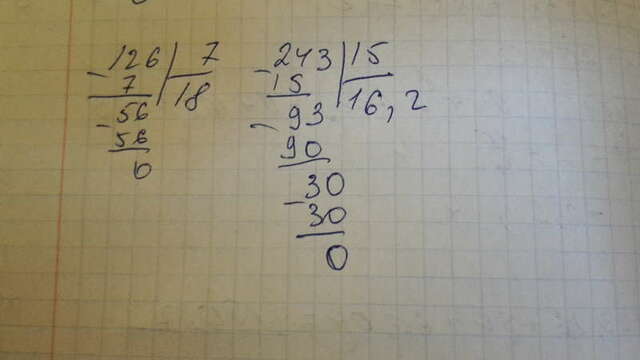 126 | 7
- 7 | 18
56
- 56
0
243 | 15
- 15 | 16,2
93
- 90
30
- 30
0